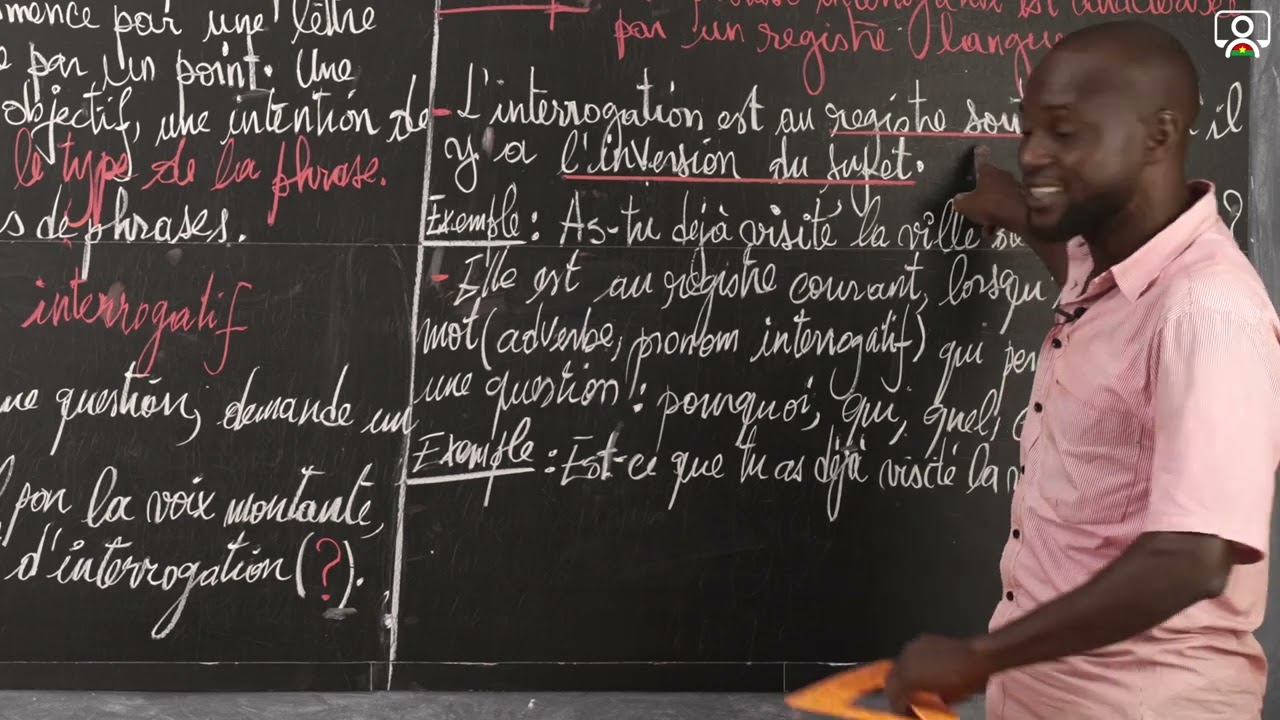 par une lettre
par un point. Une
objectif, une intention de
le type de la phrase.
de phrases.
interrogatif
question, demande un
la voix montante,
d'interrogation (?).
par un registre langue
- L'interrogation est au registre il
y a l'inversion du sujet.
Exemple : As-tu déjà visité la ville ?
- Elle est au registre courant, lorsqu
mot (adverbe, pronom interrogatif) qui
une question : pourquoi, qui, quel,
Exemple : Est-ce que tu as déjà visité la